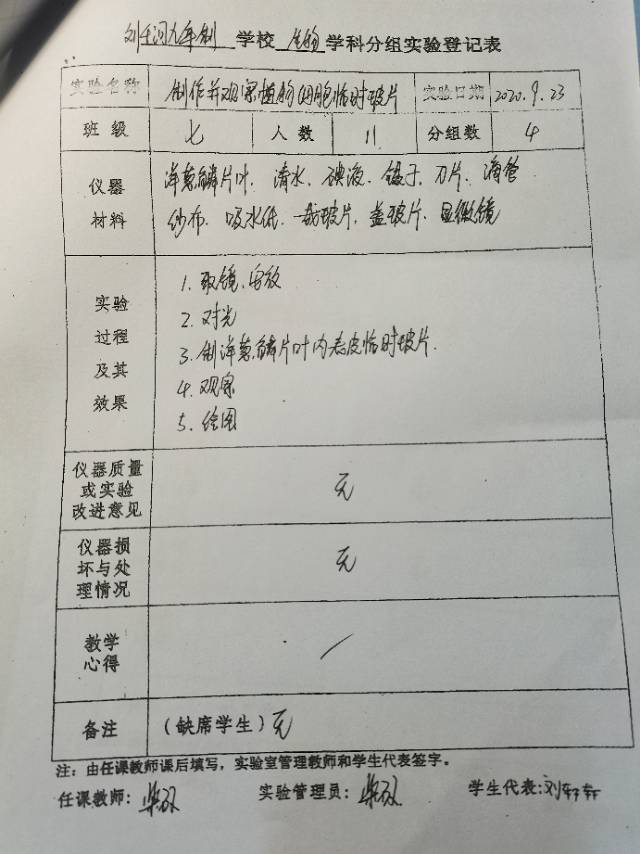 刘千河九年制 学校 生物 学科分组实验登记表
实验名称 制作并观察植物细胞临时玻片 实验日期 2020.9.23
班级 七 人数 11 分组数 4
仪器材料 洋葱鳞片叶、清水、碘液、镊子、刀片、滴管
纱布、吸水纸、载玻片、盖玻片、显微镜
实验过程及其效果
1.取镜、安放
2.对光
3.制洋葱鳞片叶内表皮临时玻片.
4.观察
5.绘图
仪器质量或实验改进意见 无
仪器损坏与处理情况 无
教学心得 /
备注 (缺席学生)无
注:由任课教师课后填写,实验室管理教师和学生代表签字。
任课教师: 实验管理员: 学生代表:刘轩轩